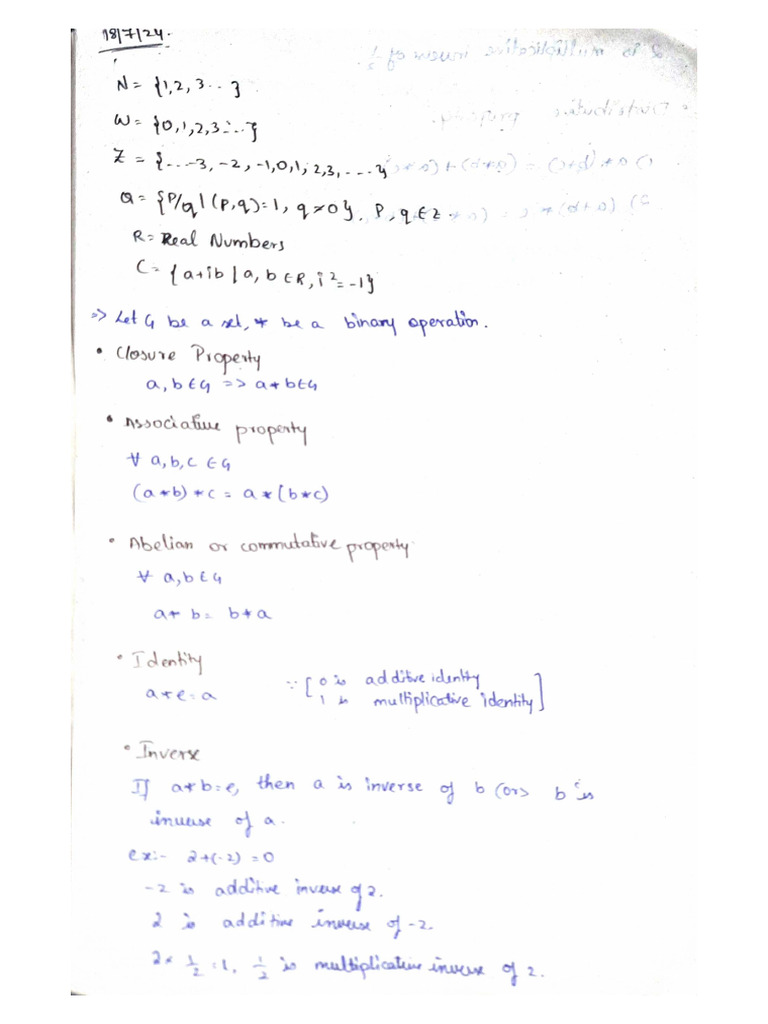 18/7/24.
N = {1,2,3..}
W = {0,1,2,3...}
Z = {...-3, -2, -1,0,1, 2,3, ....}
Q = {P/q | (P,q)=1, q≠0}, P, q ∈ Z.
R = Real Numbers
C = {a+ib | a, b ∈ R, i² = -1}
=> Let G be a set, * be a binary operation.
• Closure Property
a, b ∈ G => a * b ∈ G
• Associative property
∀ a, b, c ∈ G
(a*b)*c = a*(b*c)
• Abelian or commutative property
∀ a, b ∈ G
a* b = b*a
• Identity
a*e = a ∵ [0 is additive identity
1 is multiplicative identity]
• Inverse
If a*b=e, then a is inverse of b (or) b is
inverse of a.
ex:- 2+(-2) = 0
-2 is additive inverse of 2.
2 is additive inverse of -2.
2× 1/2 = 1, 1/2 is multiplicative inverse of 2.
2 is multiplicative inverse of 1/2.
• Distributive property.
1) a*(b+c) = (a*b)+(a*c)